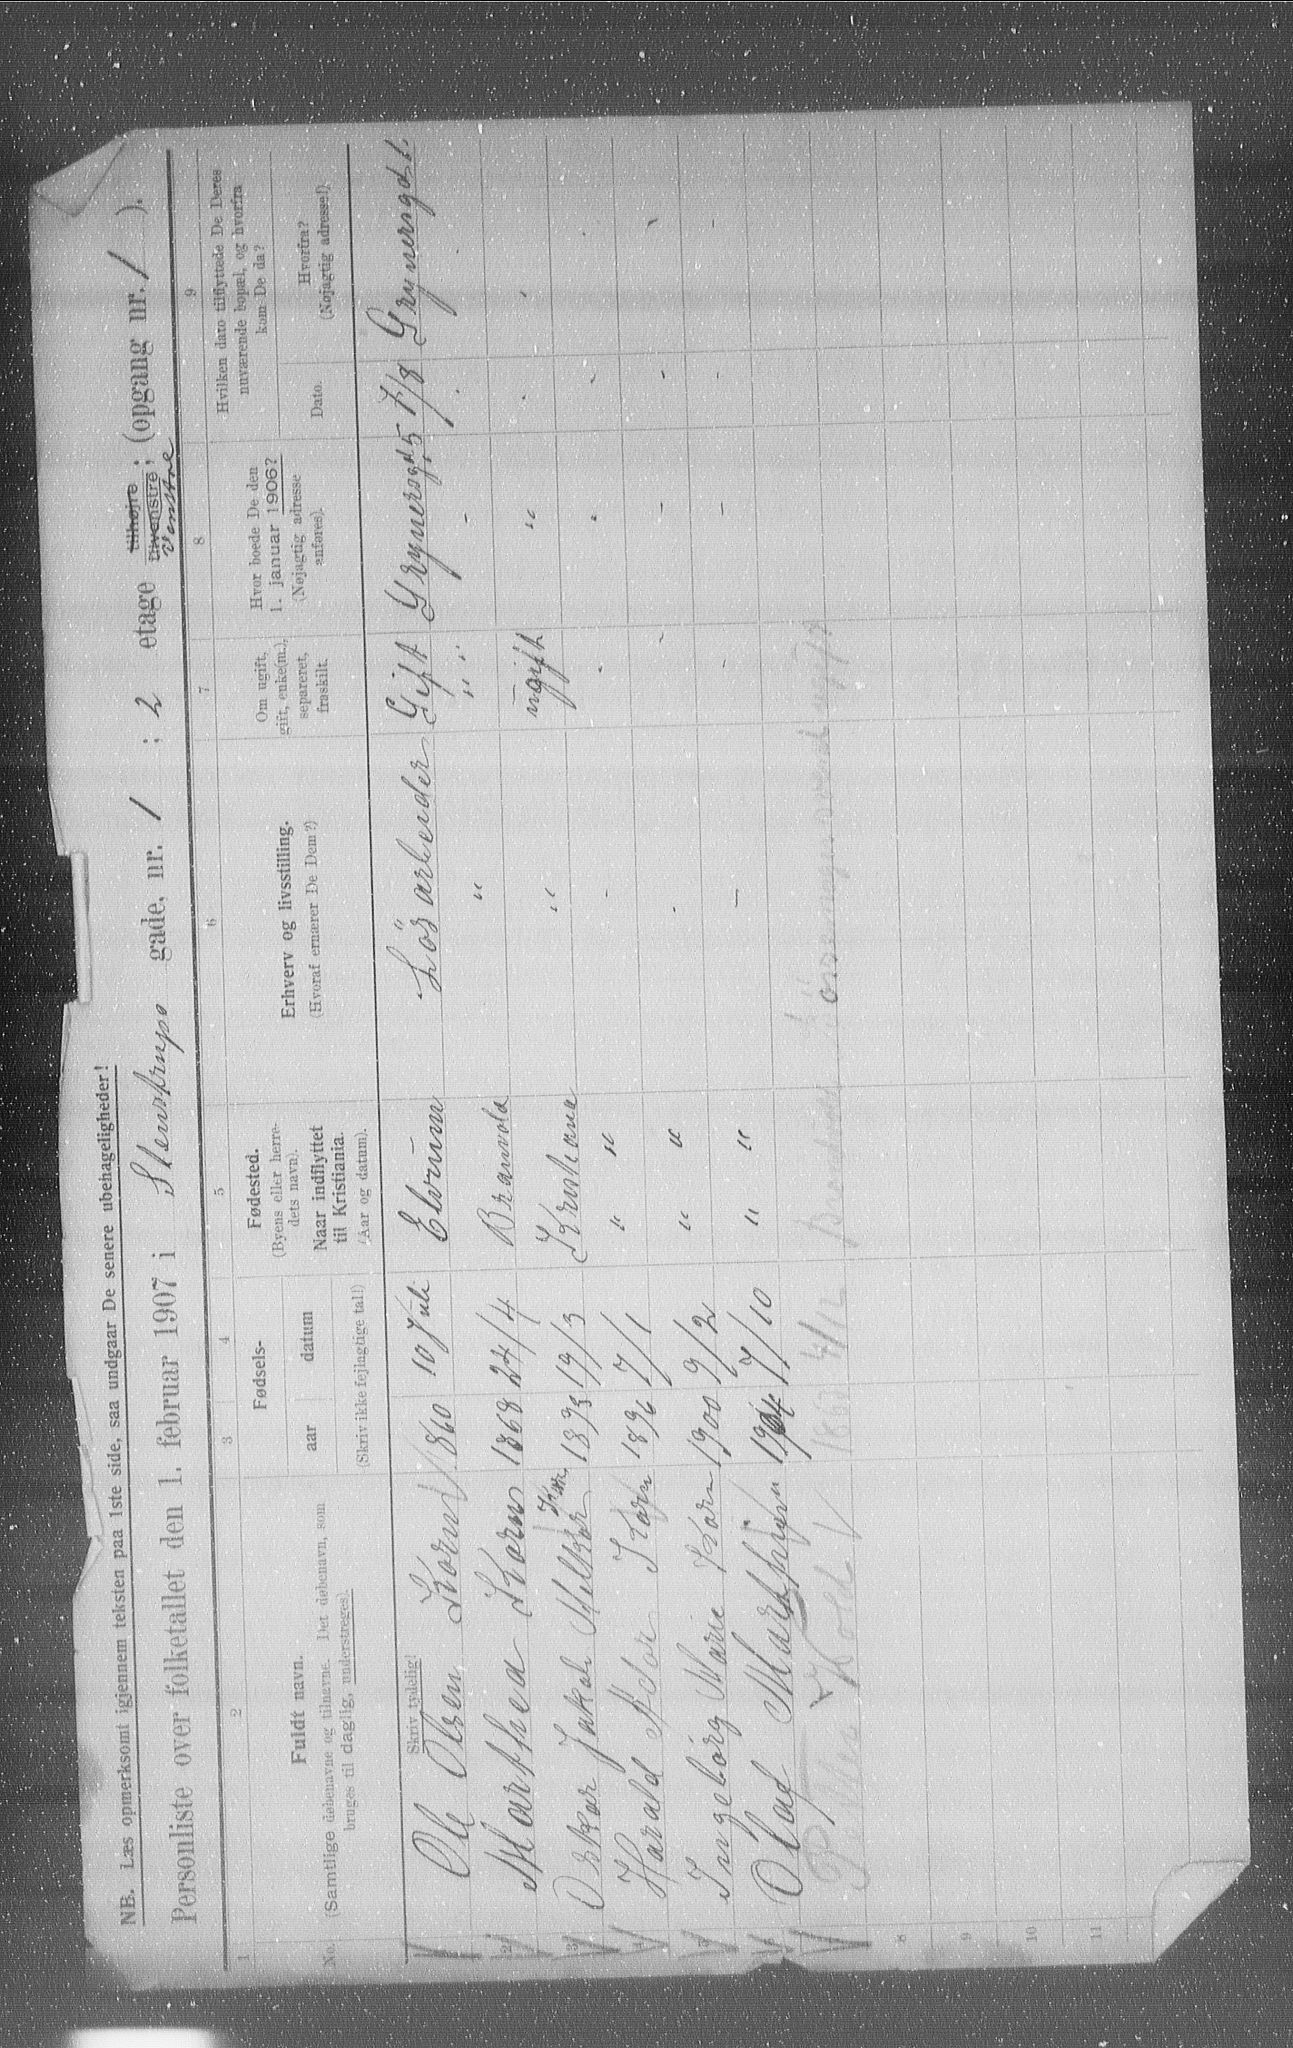 NB. Læs opmerksomt igjennem teksten paa 1ste side, saa undgaar De senere ubehageligheder!
Personliste over folketallet den 1. februar 1907 i Stenstrups gade, nr. 1 ; 2 etage tilhøjre tilvenstre ; (opgang nr. 1 ).
venstre
1 2 3 4 5 6 7 8 9
No. Fuldt navn. (Samtlige døbenavne og tilnavne. Det døbenavn, som bruges til daglig, understreges).
Fødsels- aar datum (Skriv ikke fejlagtige tal!)
Fødested. (Byens eller herredets navn). Naar indflyttet til Kristiania. (Aar og datum).
Erhverv og livsstilling. (Hvoraf ernærer De Dem?)
Om ugift, gift, enke(m.), separeret, fraskilt.
Hvor boede De den 1. januar 1906? (Nøjagtig adresse anføres).
Hvilken dato tilflyttede De Deres nuværende bopæl, og hvorfra kom De da?
Dato. Hvorfra? (Nøjagtig adresse!)
Skriv tydelig!
Ole Olsen Korn 1860 10 Juli Elvrum Lösarbeider Gift Grynersgd. 5 7/8 Grynersgd.
2 Marthea Korn 1868 24/4 Branvold " " " - . .
3 Oskar Jakob Melkior Korn 1893 19/3 Kristiania " ugift " . .
4 Harald Ador Korn 1896 7/1 " " - . . - .
5 Ingeborg Marie Korn 1900 9/2 " " - - - - -
6 Olaf Marthin 1904 7/10 " " - - - - -
Petter Hold 4/12 ugift
8
9
10
11